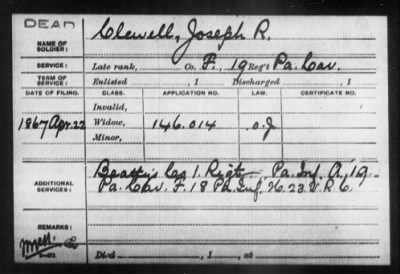 DEAD
NAME OF SOLDIER: Clewell, Joseph R.
SERVICE: Late rank, Co. F., 19 Reg't Pa. Cav.
TERM OF SERVICE: Enlisted , 1 Discharged , 1
DATE OF FILING. CLASS. APPLICATION NO. LAW. CERTIFICATE NO.
Invalid,
1867 Apr. 22 Widow, 146.014 O.J.
Minor,
ADDITIONAL SERVICES: Beatty's Co. 1. Regt Pa. Inf. A, 19
Pa. Cav. F. 18 Pa. Inf. H. 23 V. R. C.
REMARKS:
Died , 1 , at